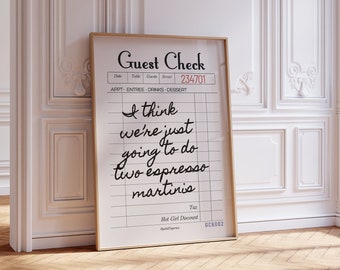 Guest Check
Date Table Guests Server 234701
APPT - ENTREE - DRINKS - DESSERT
I think
we're just
going to do
two espresso
martinis
Tax
Hot Girl Discount